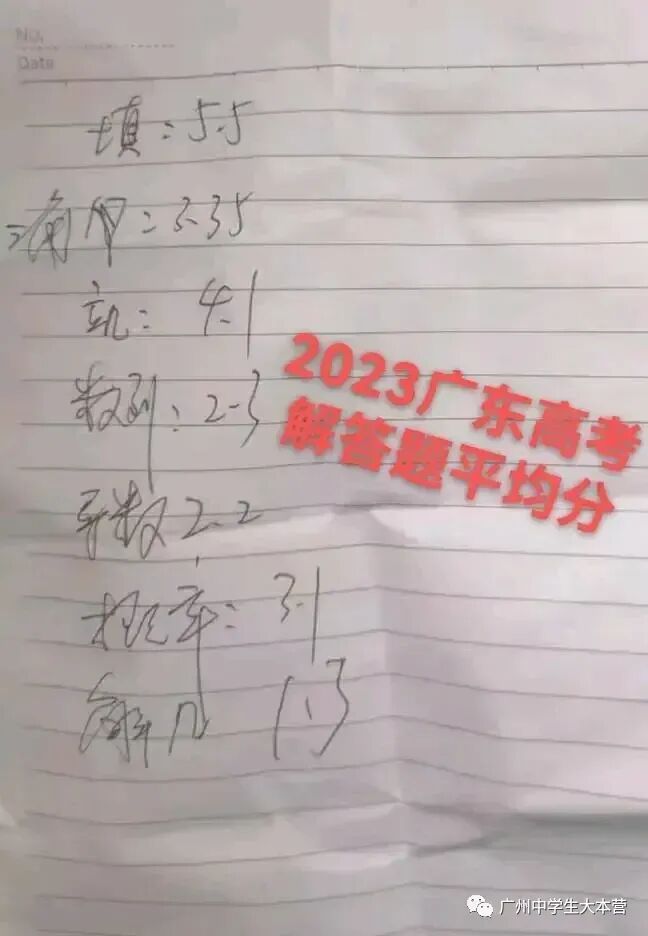 No.
Date
填：5.5
三角：3.35
立几：4.1
数列：2.3
导数2.2
概率：3.1
解几 1.3
2023广东高考
解答题平均分
广州中学生大本营